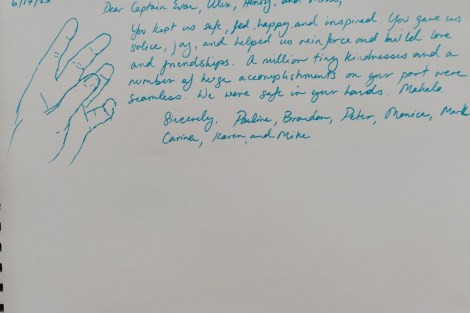 Dear Captain Evan, Wes, Henry, and
You kept us safe, fed, happy, and inspired. You gave us
solice, joy, and helped us reinforce and build love
and friendships. A million tiny kindnesses and a
number of huge accomplishments on your part were
seamless. We were safe in your hands. Mahalo.
Sincerely, Pauline, Brandon, Peter, Monica, Mark
Carina, Karen, and Mike